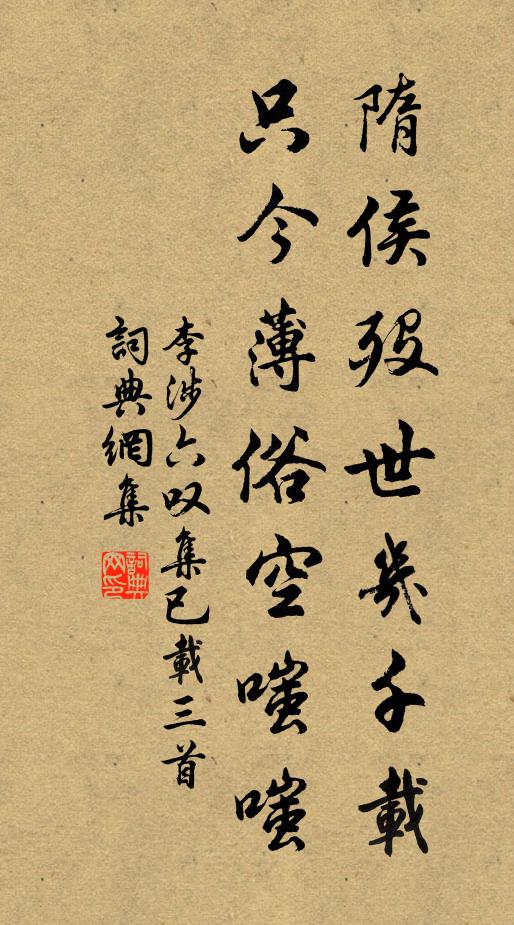 隋侯殁世幾千載
只今薄俗空嗤嗤
李涉六叹集已載三首
詞典網集
詞典网印